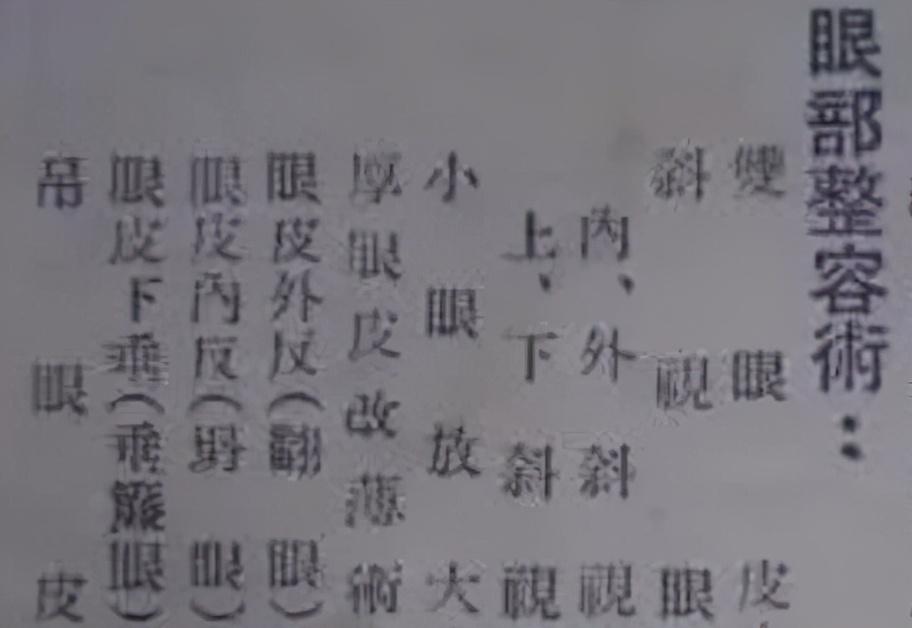 眼部整容術：
雙眼皮
斜視眼
內、外斜視
上、下斜視
小眼放大
厚眼皮改薄術
眼皮外反(翻眼)
眼皮內反(眼)
眼皮下垂(垂簾眼)
吊眼皮